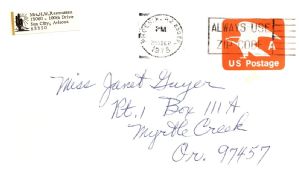 Mrs. J.W. Rasmussen
15087 - 109th Drive
Sun City, Arizona
85350
PM
1978
ALWAYS USE
ZIP CODE
A
US Postage
Miss Janet Guyer
Rt. 1 Box 111 A
Myrtle Creek
Or. 97457